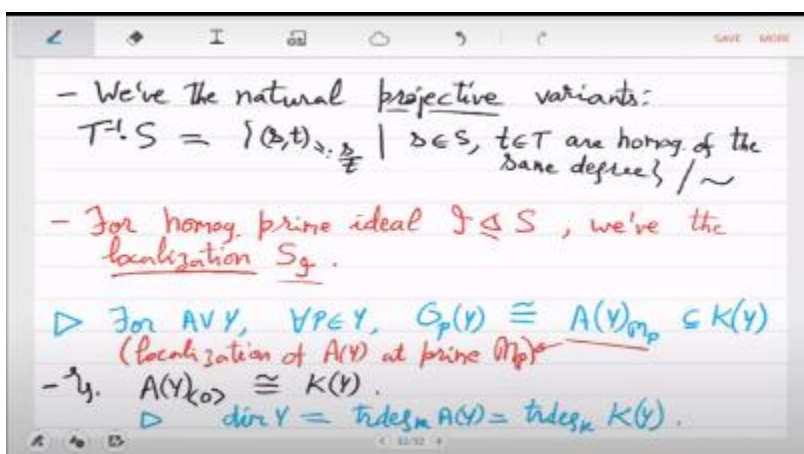 SAVE MORE
- We've the natural projective variants:
T⁻¹.S = {(s,t) =: s/t | s∈S, t∈T are homog. of the
same degree} / ~
- For homog. prime ideal I ⊴ S, we've the
localization S_I.
▷ For AV Y, ∀P∈Y, O_P(Y) ≅ A(Y)_{m_P} ⊆ K(Y)
(localization of A(Y) at prime m_P)
- Eg. A(Y)_{<0>} ≅ K(Y).
▷ dim Y = trdeg_k A(Y) = trdeg_k K(Y).